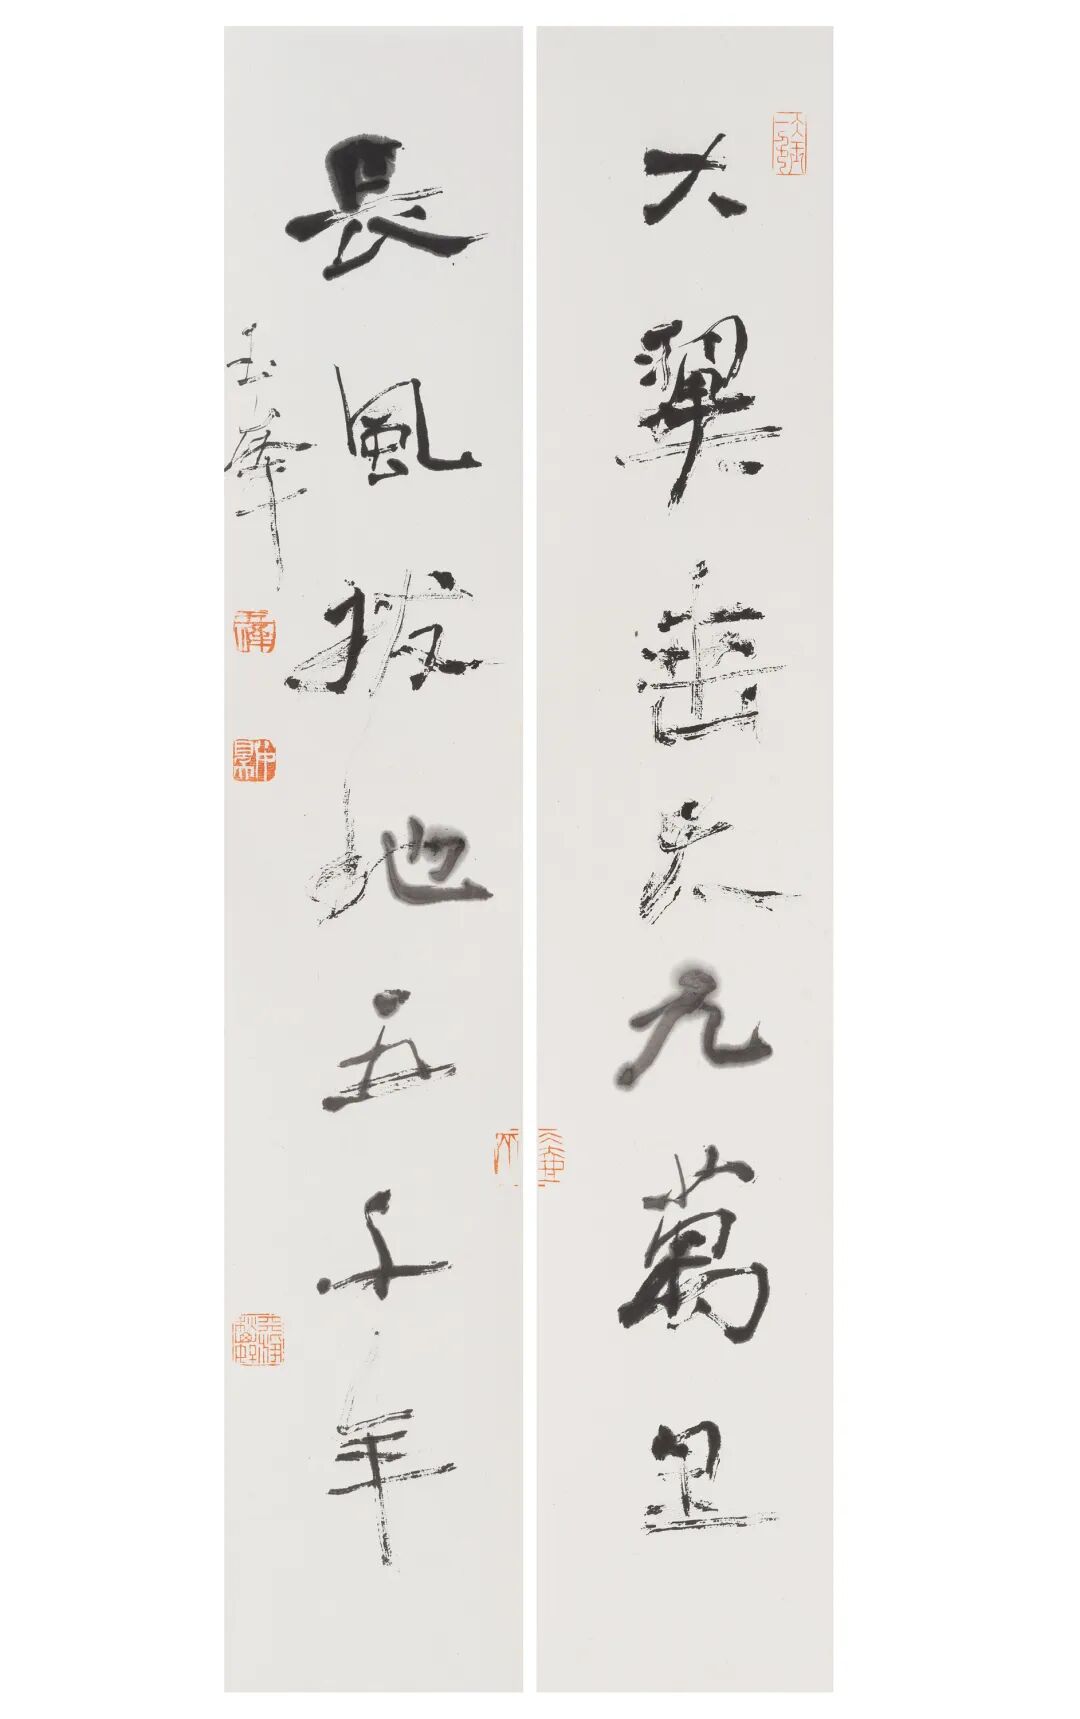 大翼垂天九萬里
長風拔地五千年
玉峰